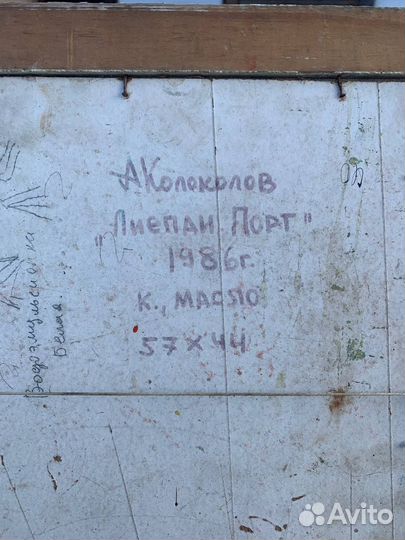 А Колоколов
"Лиепаи Порт"
1986г.
к., масло
57 х 44
Водоэмульсионка
Белая
Avito